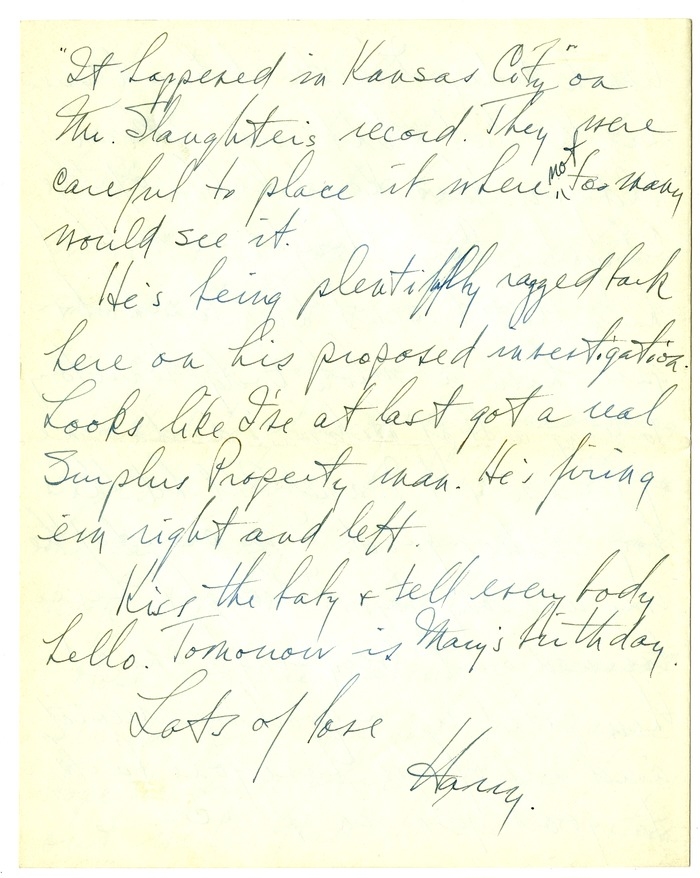 "It happened in Kansas City" on
Mr. Slaughter's record. They were
careful to place it where not too many
would see it.
He's being plentifully ragged back
here on his proposed investigation.
Looks like I've at last got a real
Surplus Property man. He's firing
em right and left.
Kiss the baby & tell everybody
hello. Tomorrow is Mary's birthday.
Lots of love
Harry.